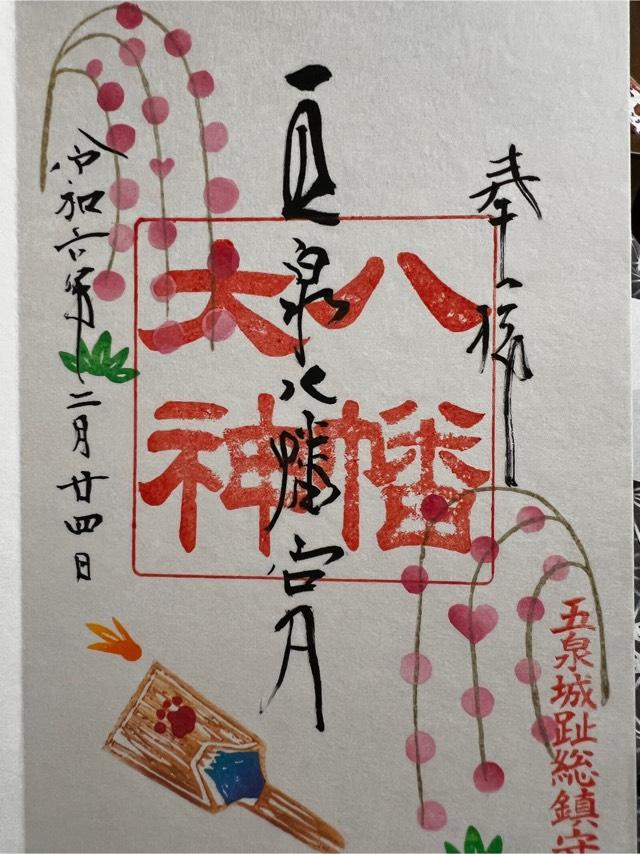 奉拝
八幡
大神
五泉八幡宮
令和六年二月廿四日
五泉城趾総鎮守